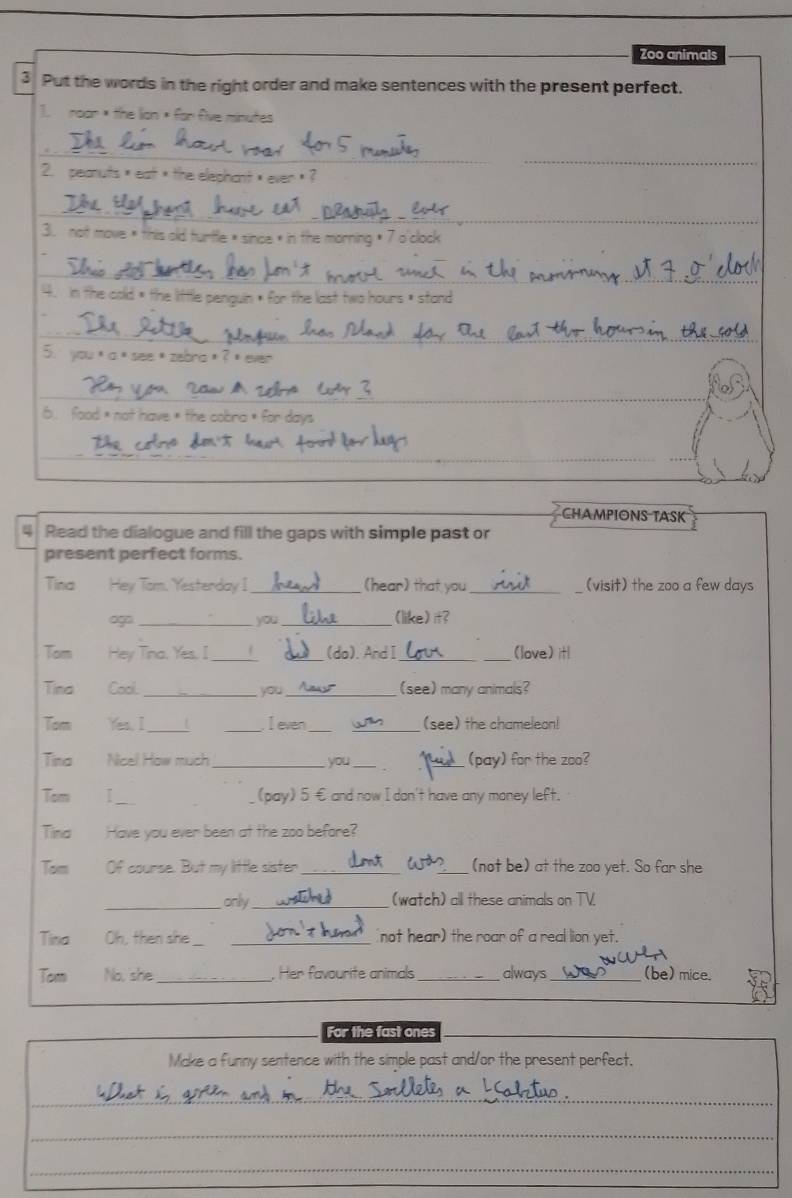 Zoo animals
3 Put the words in the right order and make sentences with the present perfect.
1. roar * the lion * for five minutes
The lion have roar for 5 minutes
2. peanuts * eat * the elephant * ever * ?
The elephant have eat peanuts ever
3. not move * this old turtle * since * in the morning * 7 o'clock
This old turtles has don't move since in the morning at 7 o'clock
4. in the cold * the little penguin * for the last two hours * stand
The little penguin has stand for the last two hours in the cold
5. you * a * see * zebra * ? * ever
you saw a zebra ever?
6. food * not have * the cobra * for days
the cobra don't have food for
CHAMPIONS TASK
4 Read the dialogue and fill the gaps with simple past or
present perfect forms.
Tina Hey Tom. Yesterday I heard (hear) that you visit (visit) the zoo a few days
ago. you like (like) it?
Tom Hey Tina. Yes, I ! did (do). And I love (love) it!
Tina Cool. you saw (see) many animals?
Tom Yes, I ! . I even was (see) the chameleon!
Tina Nice! How much you paid (pay) for the zoo?
Tom I (pay) 5 € and now I don't have any money left.
Tina Have you ever been at the zoo before?
Tom Of course. But my little sister dont was (not be) at the zoo yet. So far she
only watched (watch) all these animals on TV.
Tina Oh, then she don't heard (not hear) the roar of a real lion yet.
Tom No, she . Her favourite animals always was (be) mice.
For the fast ones
Make a funny sentence with the simple past and/or the present perfect.
What is green and in the a